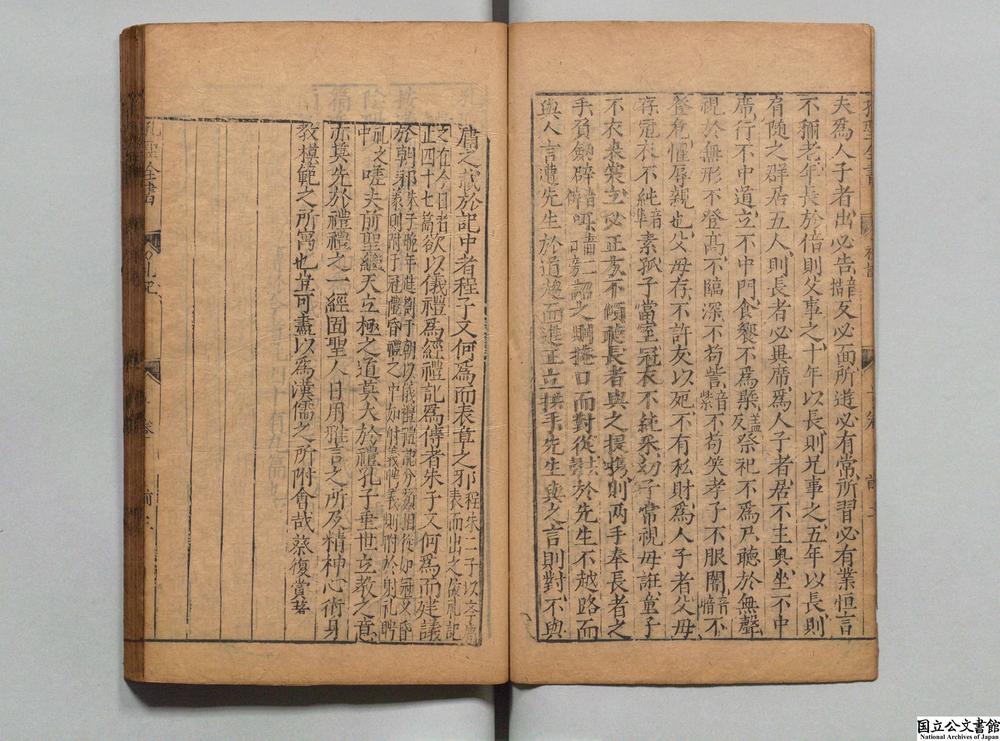 夫爲人子者出必告辭反必面所遊必有常所習必有業恒言
不稱老年長於倍則父事之十年以長則兄事之五年以長則
肩随之群居五人則長者必異席爲人子者居不主奥坐不中
席行不中道立不中門食饗不爲槩祭祀不爲尸聽於無聲
視於無形不登髙不臨深不苟訾音紫不苟笑孝子不服闇音暗不
登危懼辱親也父母存不許友以死不有私財爲人子者父母
存冠衣不純音準素孤子當室冠衣不純采幼子常視毋誑童子
不衣裘裳立必正方不傾聽長者與之提携則兩手奉長者之
手負劒辟音僻咡音二口旁詔之則掩口而對從於先生不越路而
與人言遭先生於道趨而進正立拱手先生與之言則對不與
庸之說於記中者程子又何爲而表章之邪程朱二子以本庸表而出之儀礼記
之在今日者次以儀禮爲經禮記爲傳者朱子又何爲而建議
正四十七篇欲
於朝邪朱子晚年進劄于朝以儀禮禮記分類相從如冠义昏義則附于冠禮昏禮之中如射義聘義則附於射礼聘礼文
中嗟夫前聖繼天立極之道莫大於禮孔子垂世立教之意
亦莫先於禮禮之一經固聖人日用雅言之所及精神心術身
教模範之所寓也豈可盡以爲漢儒之所附會哉蔡復賞著
孔聖全書
礼記
一卷